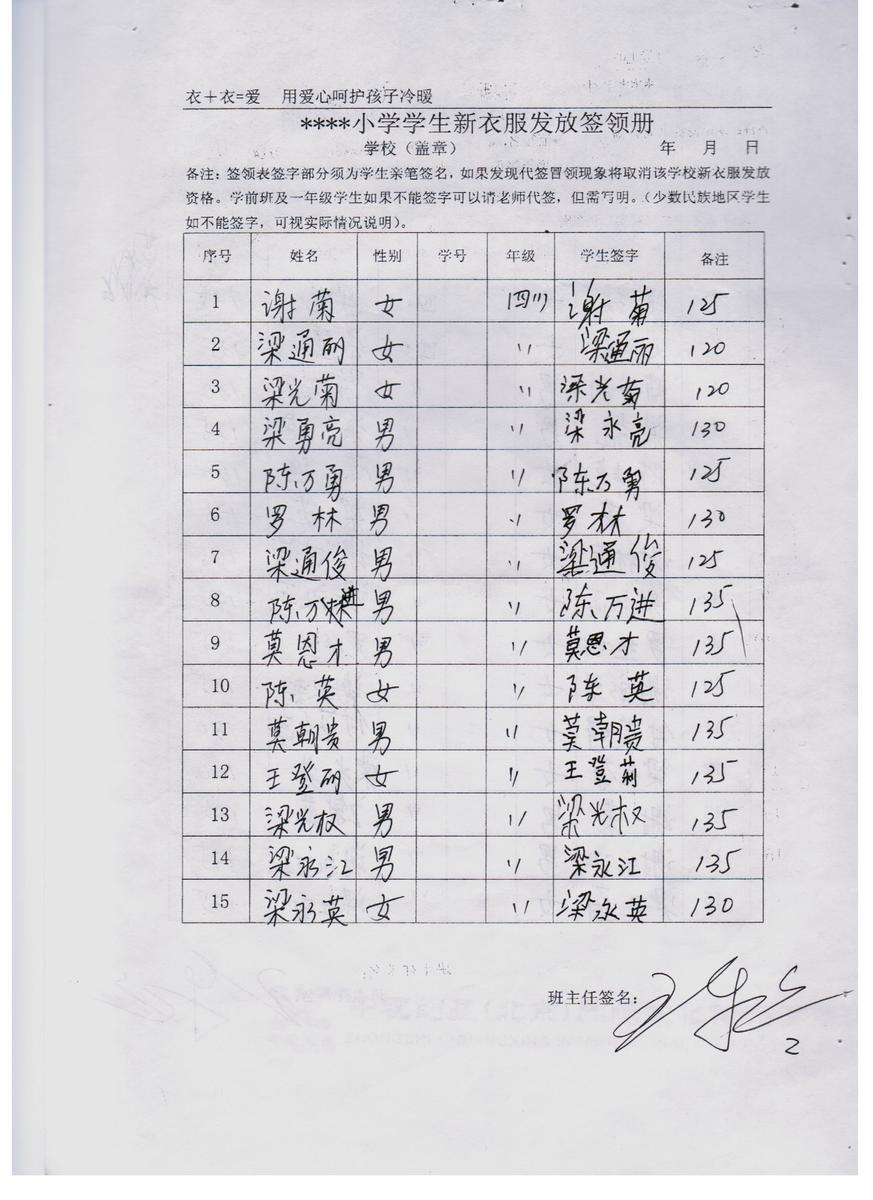 衣+衣=爱 用爱心呵护孩子冷暖
****小学学生新衣服发放签领册
学校（盖章） 年 月 日
备注：签领表签字部分须为学生亲笔签名，如果发现代签冒领现象将取消该学校新衣服发放
资格。学前班及一年级学生如果不能签字可以请老师代签，但需写明。（少数民族地区学生
如不能签字，可视实际情况说明）。
序号 姓名 性别 学号 年级 学生签字 备注
1 谢菊 女 四(1) 谢菊 125
2 梁通丽 女 〃 梁通丽 120
3 梁光菊 女 〃 梁光菊 120
4 梁勇亮 男 〃 梁永亮 130
5 陈万勇 男 〃 陈万勇 125
6 罗林 男 〃 罗林 130
7 梁通俊 男 〃 梁通俊 125
8 陈万进 男 〃 陈万进 135
9 莫恩才 男 〃 莫恩才 135
10 陈英 女 〃 陈英 125
11 莫朝贵 男 〃 莫朝贵 135
12 王登丽 女 〃 王登 135
13 梁光权 男 〃 梁光权 135
14 梁永江 男 〃 梁永江 135
15 梁永英 女 〃 梁永英 130
班主任签名：
2